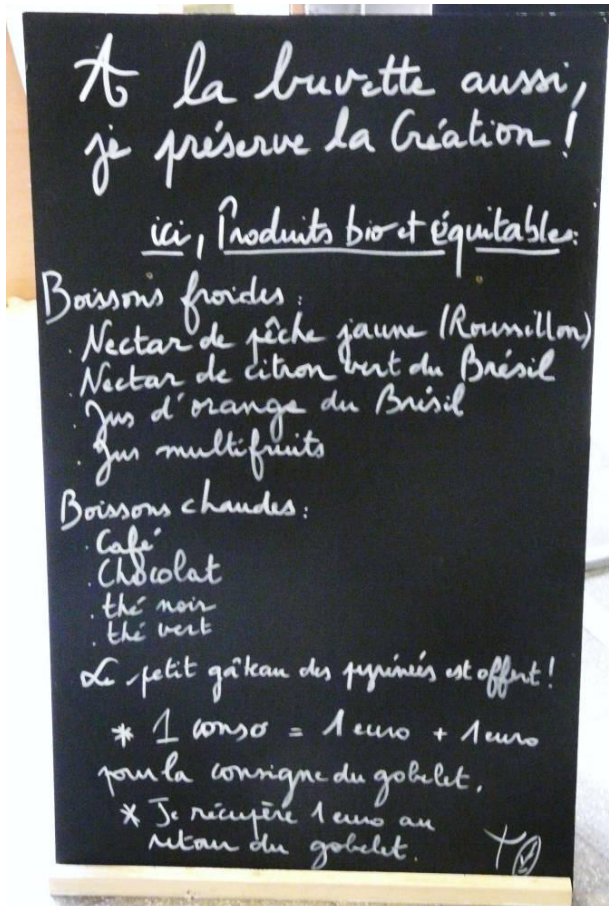 A la buvette aussi,
je préserve la Création !
ici, Produits bio et équitables:
Boissons froides :
. Nectar de pêche jaune (Roussillon)
. Nectar de citron vert du Brésil
. Jus d'orange du Brésil
. Jus multifruits
Boissons chaudes :
. Café
. Chocolat
. thé noir
. thé vert
Le petit gâteau des pyrénées est offert !
* 1 conso = 1 euro + 1 euro
pour la consigne du gobelet.
* Je récupère 1 euro au
retour du gobelet.